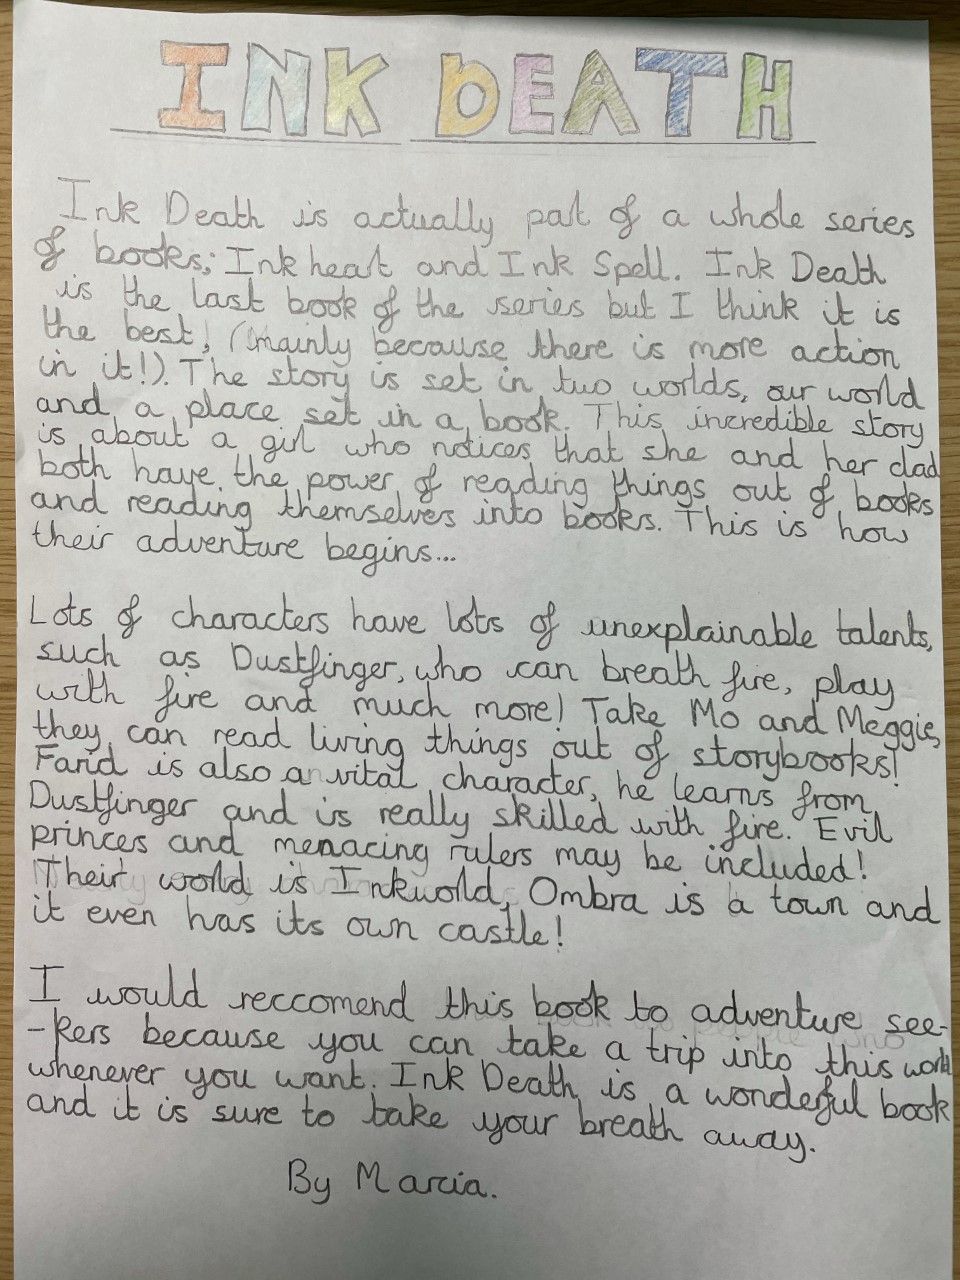 INK DEATH
Ink Death is actually part of a whole series
of books; Ink heart and Ink Spell. Ink Death
is the last book of the series but I think it is
the best, (mainly because there is more action
in it!). The story is set in two worlds, our world
and a place set in a book. This incredible story
is about a girl who notices that she and her dad
both have the power of reading things out of books
and reading themselves into books. This is how
their adventure begins...
Lots of characters have lots of unexplainable talents,
such as Dustfinger, who can breath fire, play
with fire and much more! Take Mo and Meggie,
they can read living things out of storybooks!
Farid is also a vital character, he learns from
Dustfinger and is really skilled with fire. Evil
princes and menacing rulers may be included!
Their world is Inkworld, Ombra is a town and
it even has its own castle!
I would reccomend this book to adventure see-
-kers because you can take a trip into this world
whenever you want. Ink Death is a wonderful book
and it is sure to take your breath away.
By Marcia.